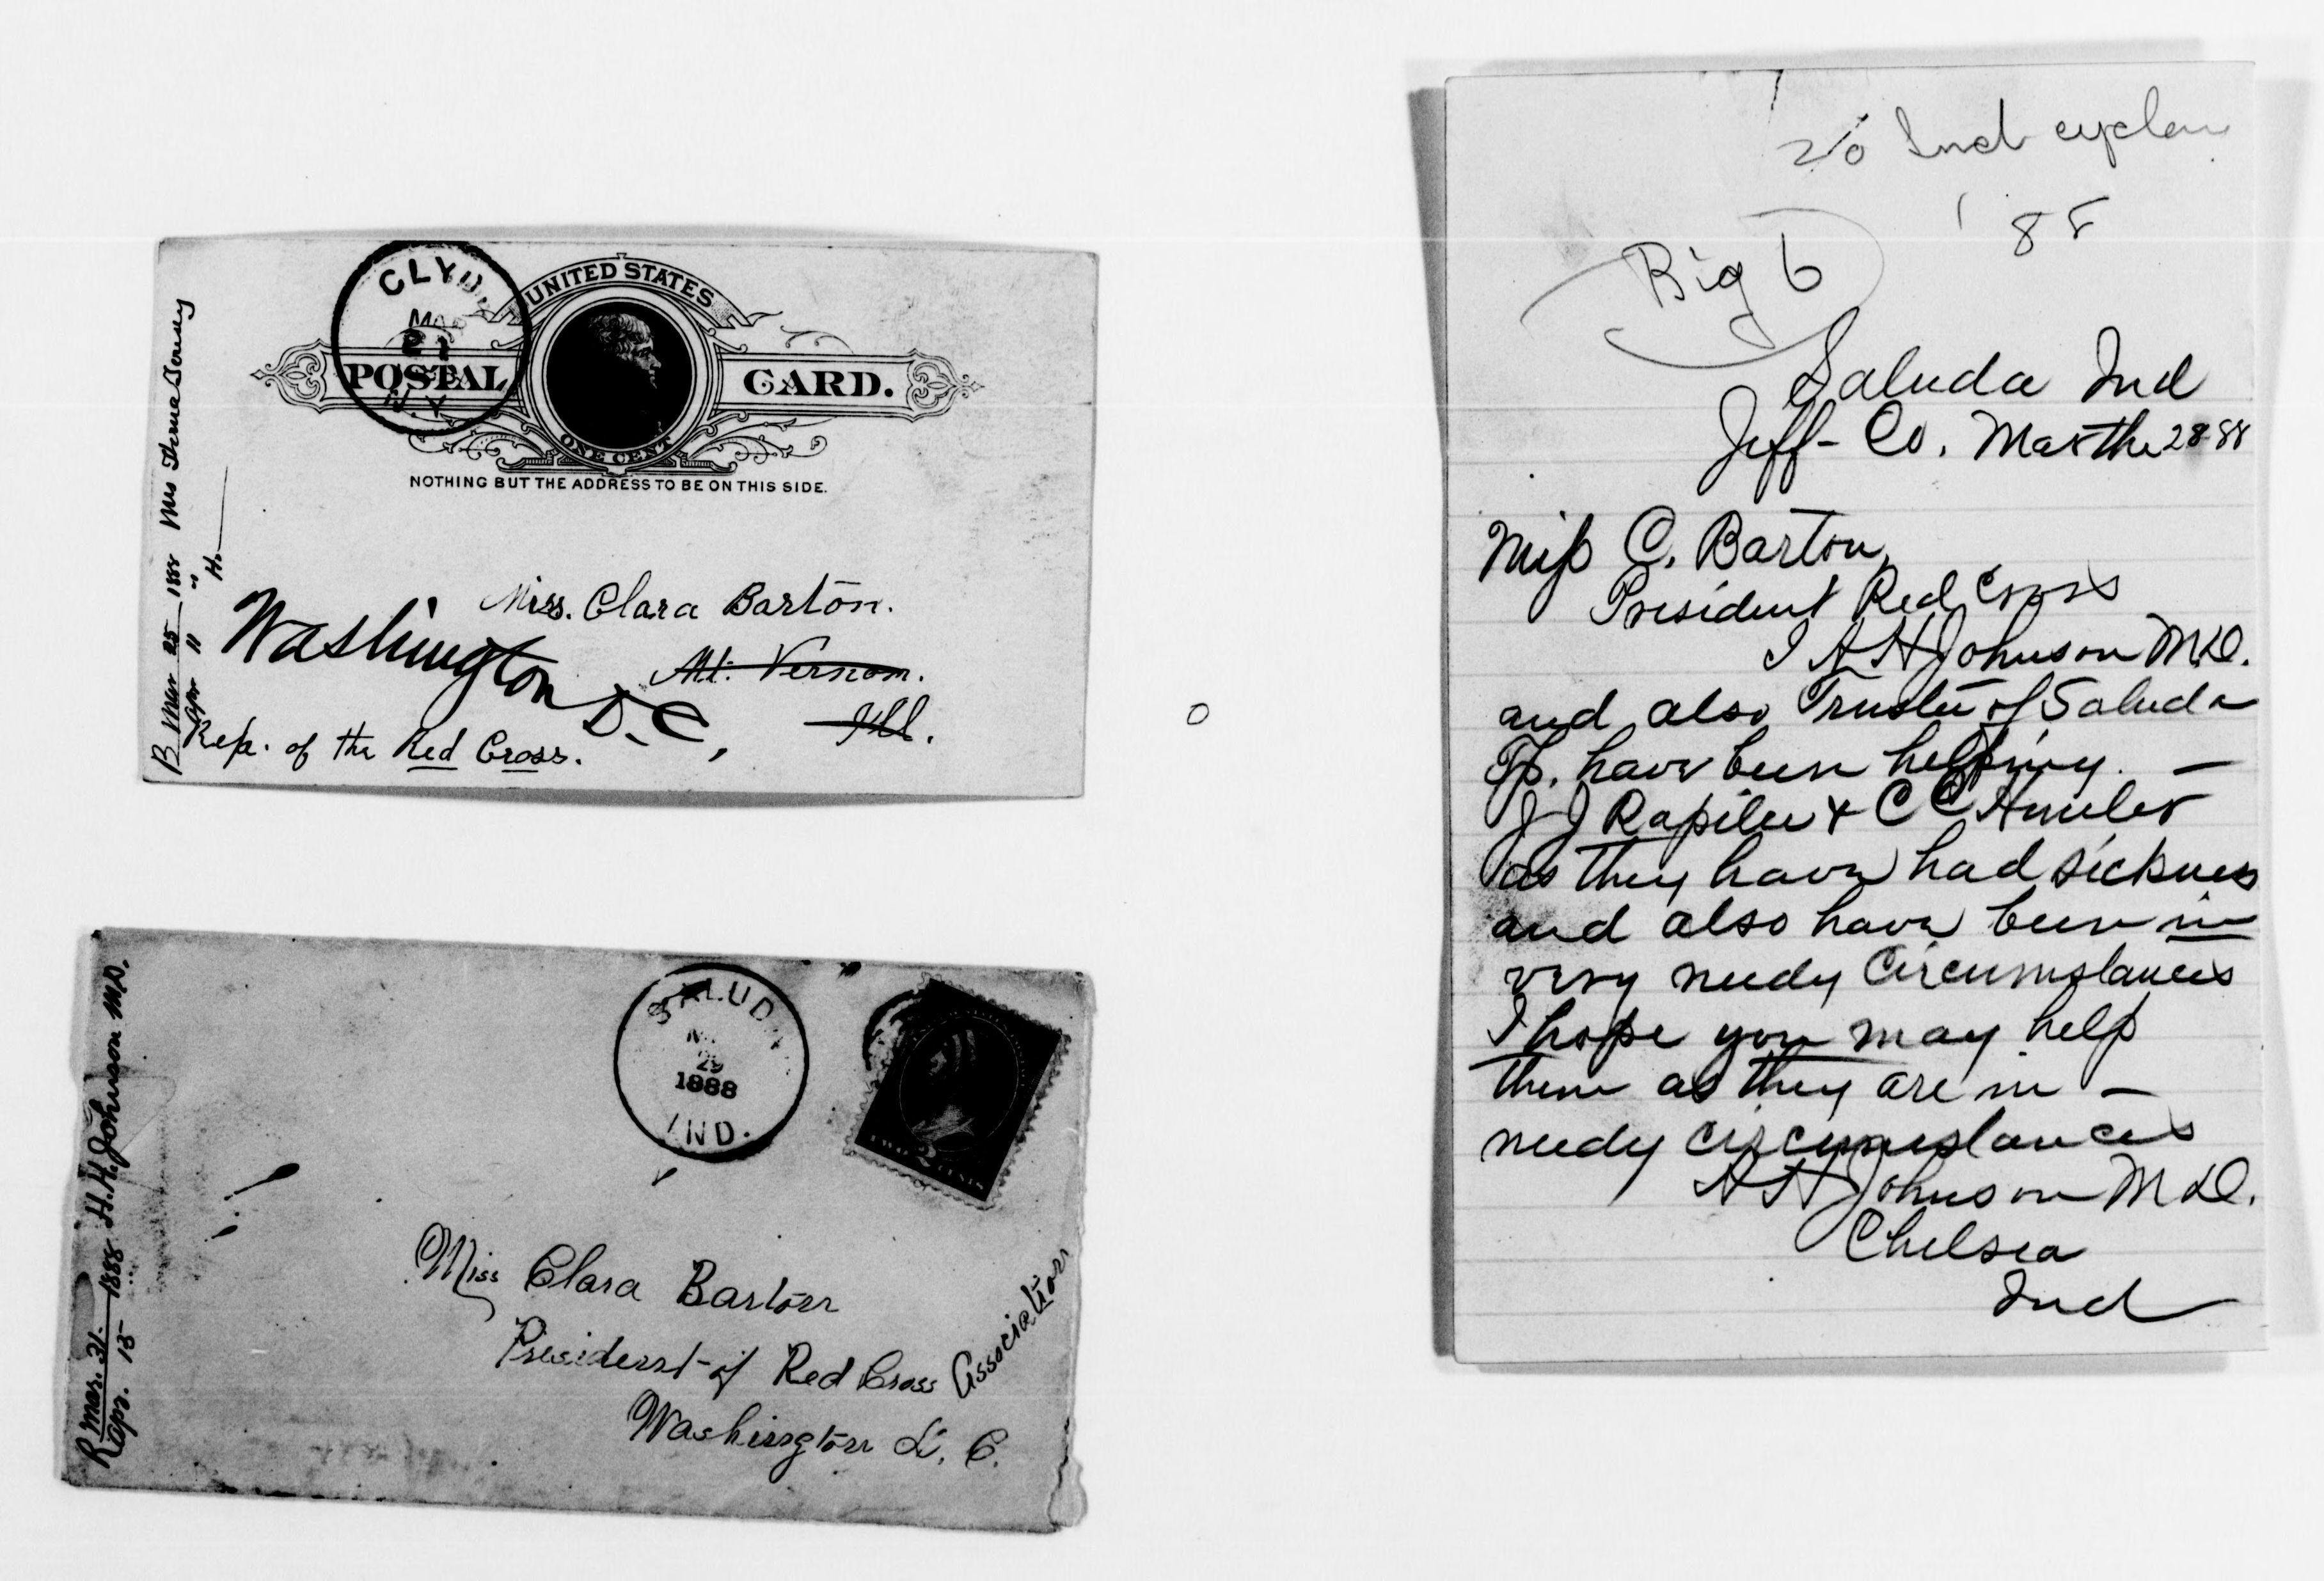 CLYDE
MAR
21
N.Y.
UNITED STATES
POSTAL CARD.
ONE CENT
NOTHING BUT THE ADDRESS TO BE ON THIS SIDE.
Miss. Clara Barton.
Mt. Vernon.
Ill.
Washington
D.C,
Rep. of the Red Cross.
Mar 25 1888 Mrs
Apr 11 "
SALUDA
29
1888
IND.
TWO 2 CENTS
Miss Clara Barton
President of Red Cross Association
Washington D. C.
R Mar. 31. 1888 H. H. Johnson M.D.
R Apr. 15 "
Ind cyclone
'88
Big 6
Saluda Ind
Jeff- Co. 28-88
Miss C. Barton,
President Red Cross
I A H Johnson M.D.
and also Trustee of Saluda
Tp. have been helping. —
J J & C C
as they have had sickness
and also have been in
very needy Circumstances
I hope you may help
them as they are in —
needy circumstances
A H Johnson M.D.
Chelsea
Ind